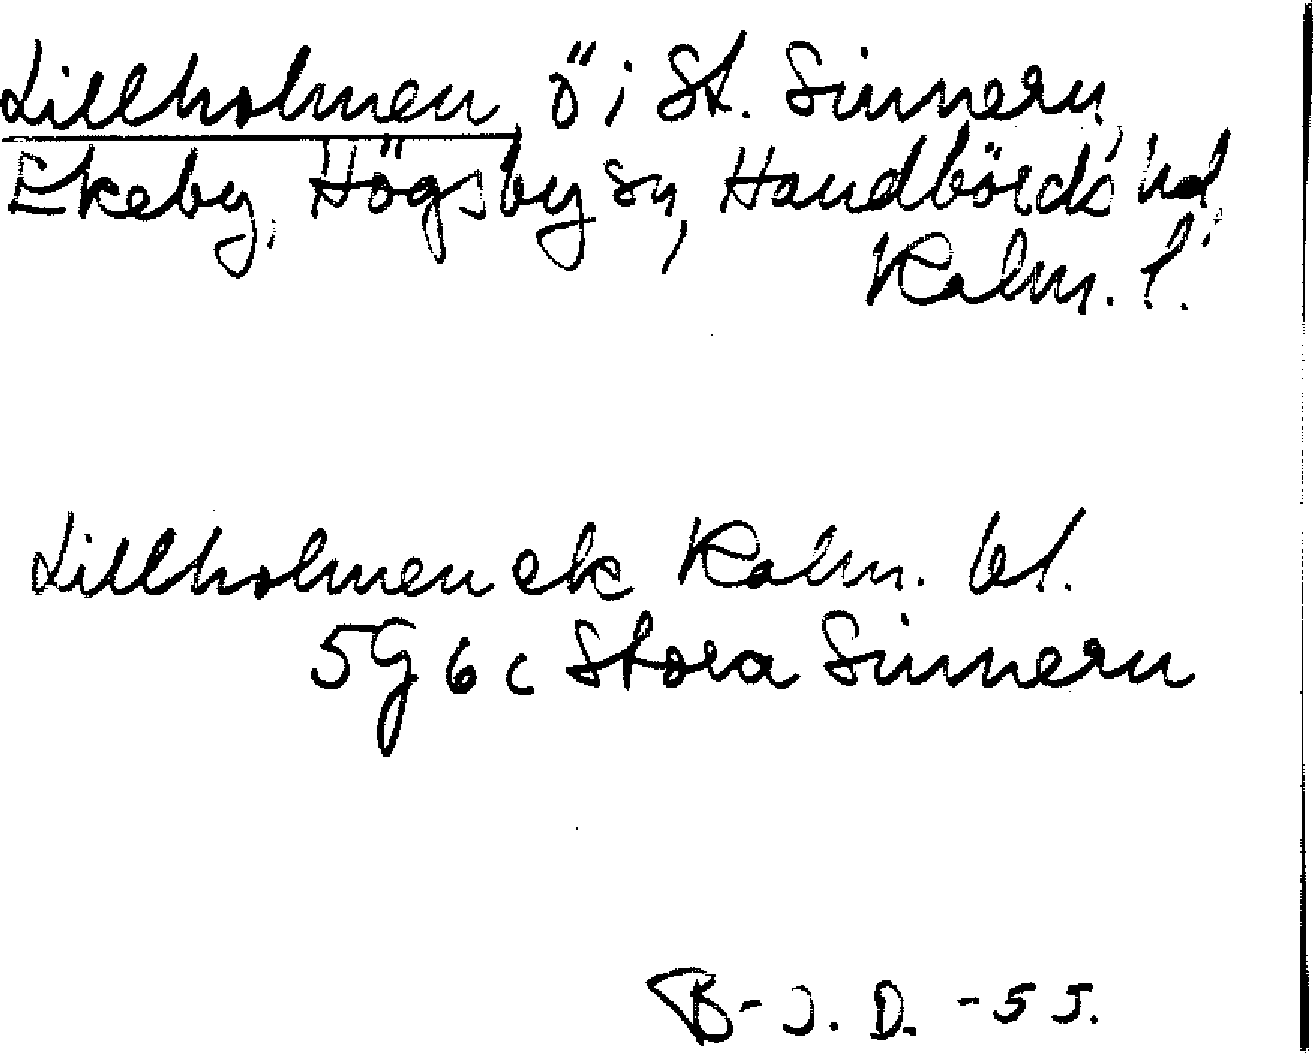 Lillholmen ö i St. Sinnern,
Ekeby, Högsby sn, Handbörds hd,
Kalm. l.
Lillholmen ek Kalm. bl.
5G6c Stora Sinnern
B-J. D. -55.